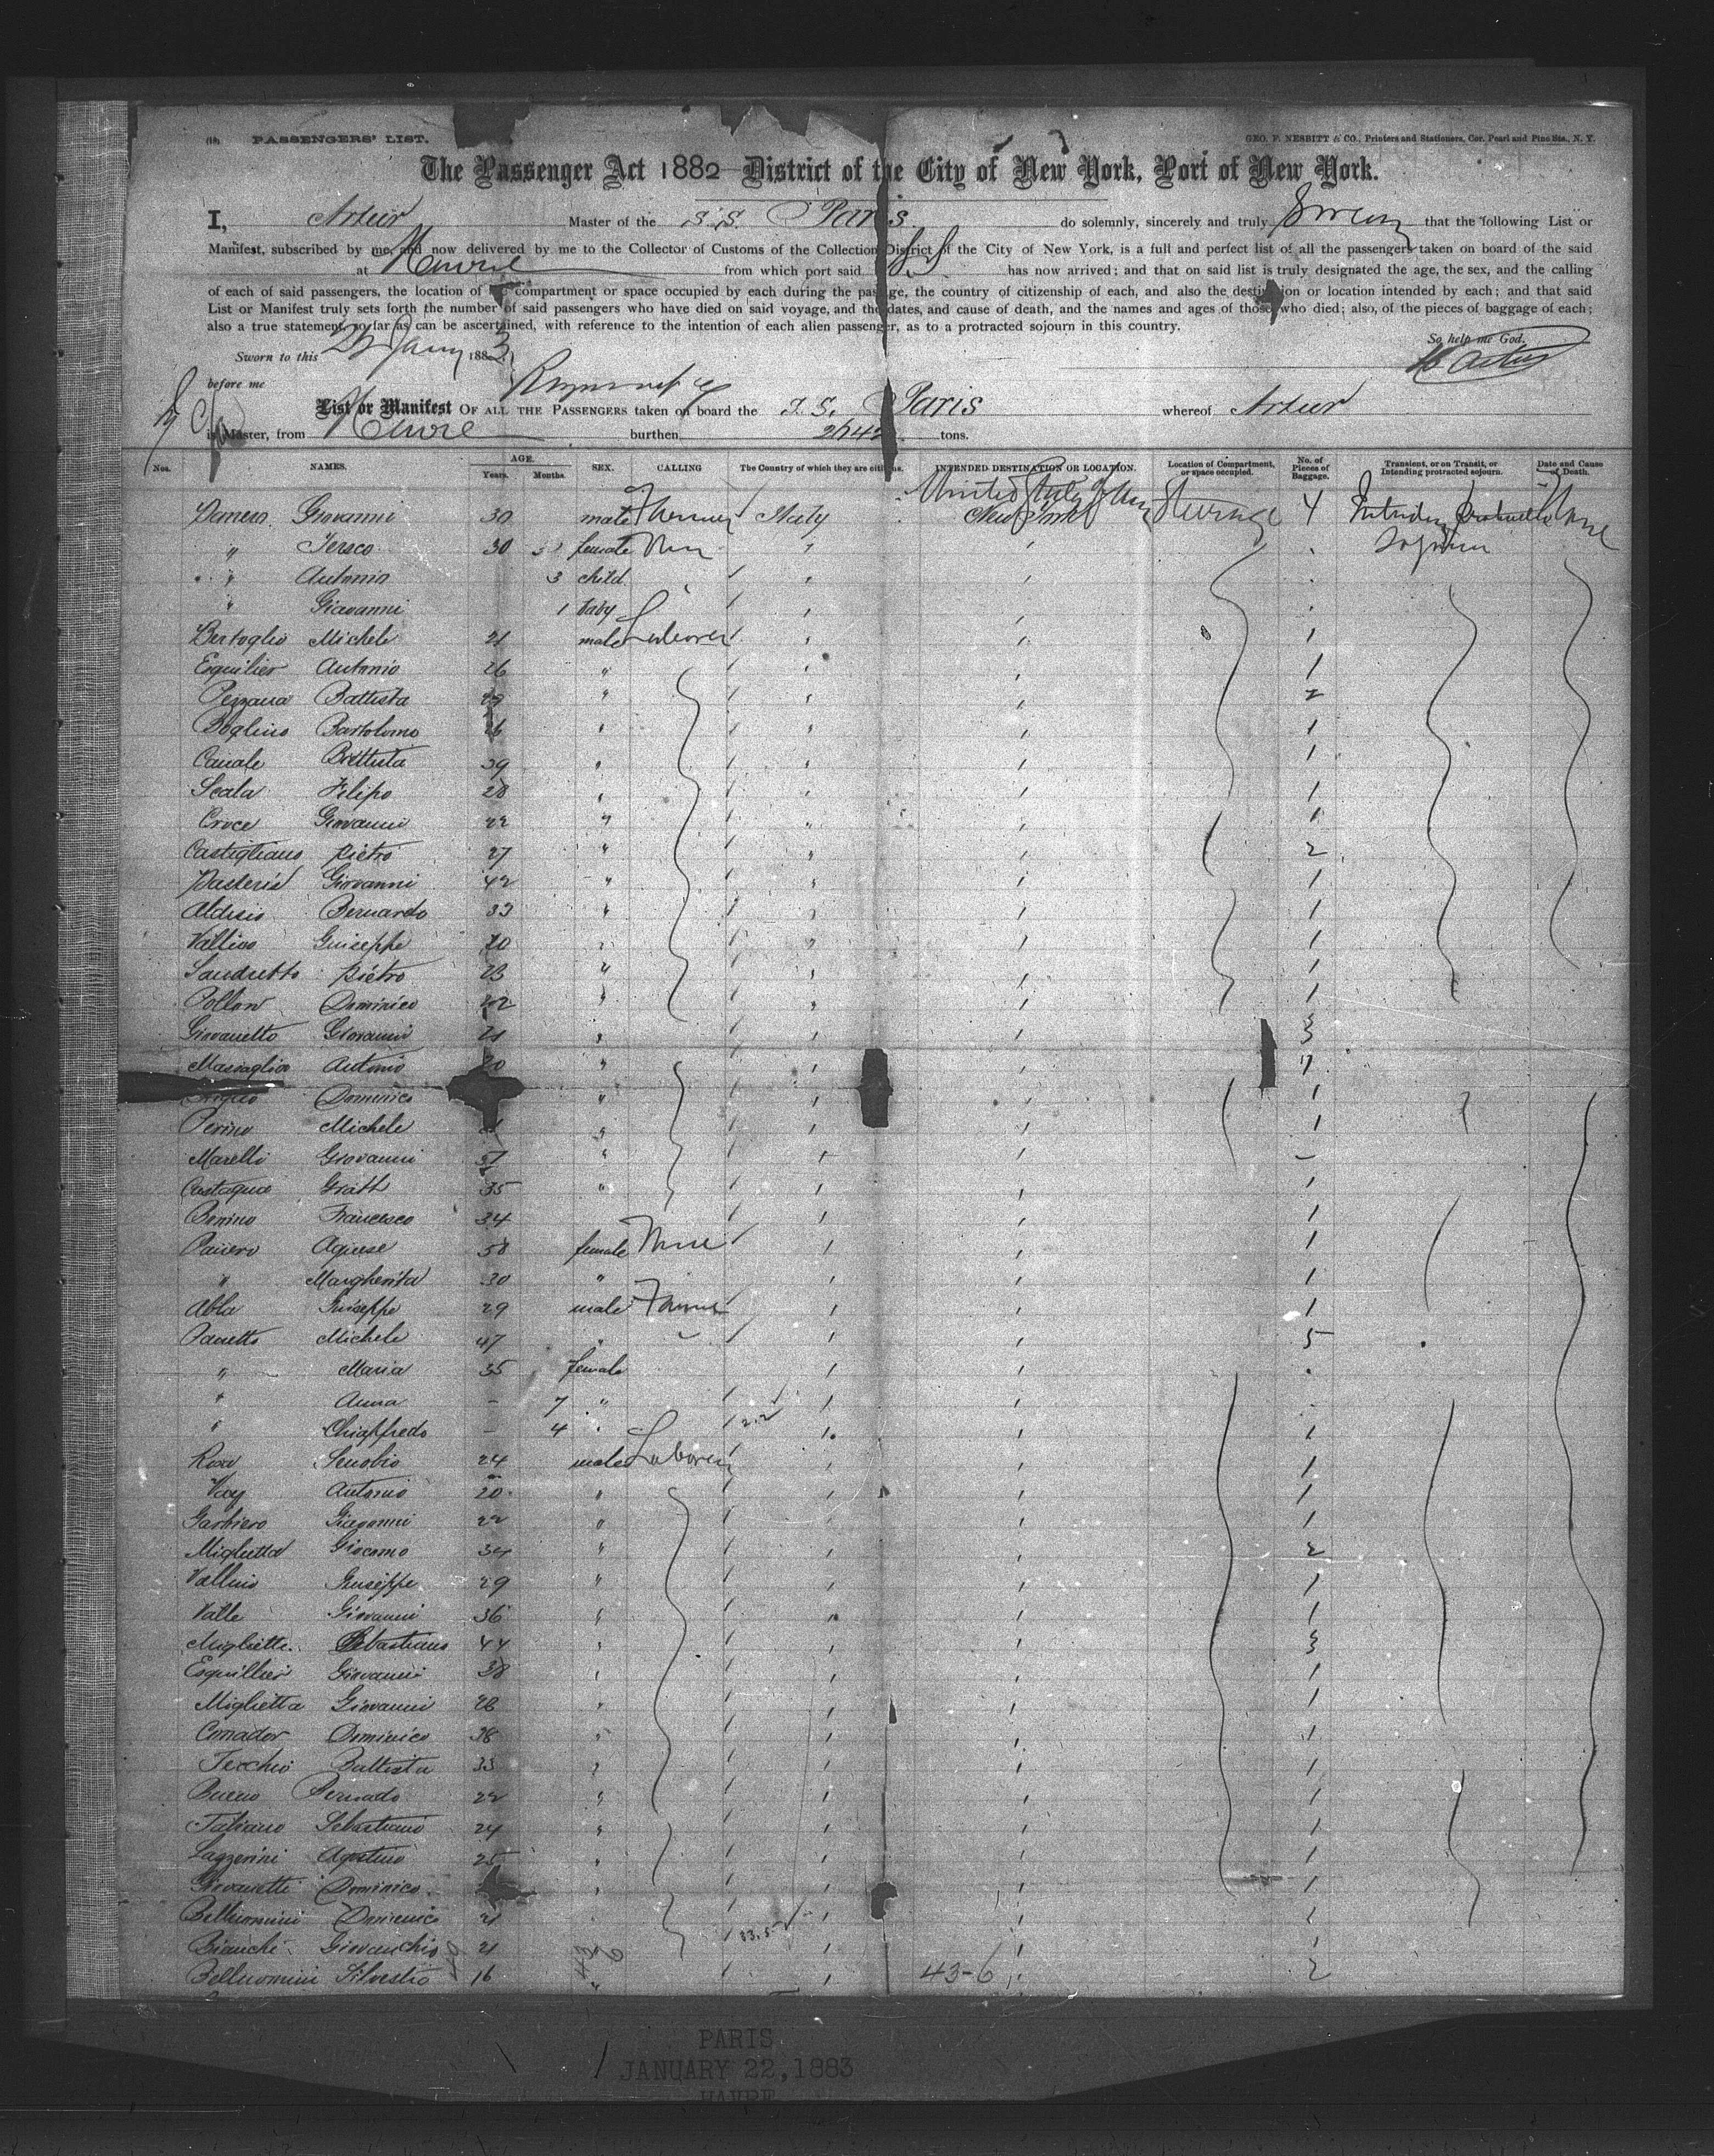 PASSENGERS' LIST.
GEO. F. NESBITT & CO., Printers and Stationers, Cor. Pearl and Pine Sts., N. Y.
The Passenger Act 1882 District of the City of New York, Port of New York.
I, Artur Master of the S.S. Paris do solemnly, sincerely and truly Swear that the following List or
Manifest, subscribed by me, and now delivered by me to the Collector of Customs of the Collection District of the City of New York, is a full and perfect list of all the passengers taken on board of the said
at Havre from which port said S.S. has now arrived; and that on said list is truly designated the age, the sex, and the calling
of each of said passengers, the location of compartment or space occupied by each during the passage, the country of citizenship of each, and also the destination or location intended by each; and that said
List or Manifest truly sets forth the number of said passengers who have died on said voyage, and the dates, and cause of death, and the names and ages of those who died; also, of the pieces of baggage of each;
also a true statement, so far as can be ascertained, with reference to the intention of each alien passenger, as to a protracted sojourn in this country.
So help me God.
Sworn to this 22 Jany 1883
before me
List or Manifest OF ALL THE PASSENGERS taken on board the S.S. Paris whereof Artur
is Master, from Havre burthen tons.
Nos. NAMES. AGE. Years. Months. SEX. CALLING The Country of which they are citizens. INTENDED DESTINATION OR LOCATION. Location of Compartment, or space occupied. No. of Pieces of Baggage. Transient, or on Transit, or Intending protracted sojourn. Date and Cause of Death.
Giovanni 30 male Farmer Italy United States of New York Steerage 4 Intending protracted sojourn None
" 30 female None
" Antonio 3 child
" Giavanni 1 baby
Bertoglio Michele 21 male Laborer 1
Esquilier Antonio 26 " 1
Pezzana Battista " 2
Boglino Bartolomo 1
Canale Battista 39 " 1
Scala Filipo 28 " 1
Croce Giovanni 22 " 1
Castigliano Pietro 27 " 2
Pasteris Giovanni 42 " 1
Aldisio Bernardo 33 " 1
Vallino Guiseppe 20 " 1
Sandretto Pietro 23 " 1
Pollon Dominico " 1
Giovanetto Giovanni 21 " 3
Masvaglio Antonio "
Dominico " 1
Perino Michele " 1
Marelli Giovanni " -
Castagna 35 " 1
Bonino Francesco 34 1
Agnese 58 female None 1
" Margherita 30 " 1
Abla Guiseppe 29 male Farmer 1
Panetto Michele 47 " 5
" Maria 35 female
" Anna - 7 "
" Chiaffredo - 4 1
Rosa Senobio 24 male Laborer 1
Vay Antonio 20 " 1
Garbiero Giavonni 22 " 1
Miglietta Giocomo 34 " 2
Vallino Guseppe 29 " 1
Valle Giovanni 36 " 1
Miglietta Sebastiano 44 " 3
Esquillier Giovanni 38 " 1
Miglietta Giovanni 28 " 1
Conador Dominico 38 " 1
Tecchio Battista 33 " 1
Bueno Bernado 22 " 1
Taliano Sebastiano 24 " 1
Lazzerini Agostino 25 " 1
Giovanetti Dominico " 1
Belluomini Domenico 21 1
Bianchi Giovanchio 21 1
Belluomini Silvestro 16 " 43-6 2
PARIS
JANUARY 22, 1883
HAVRE